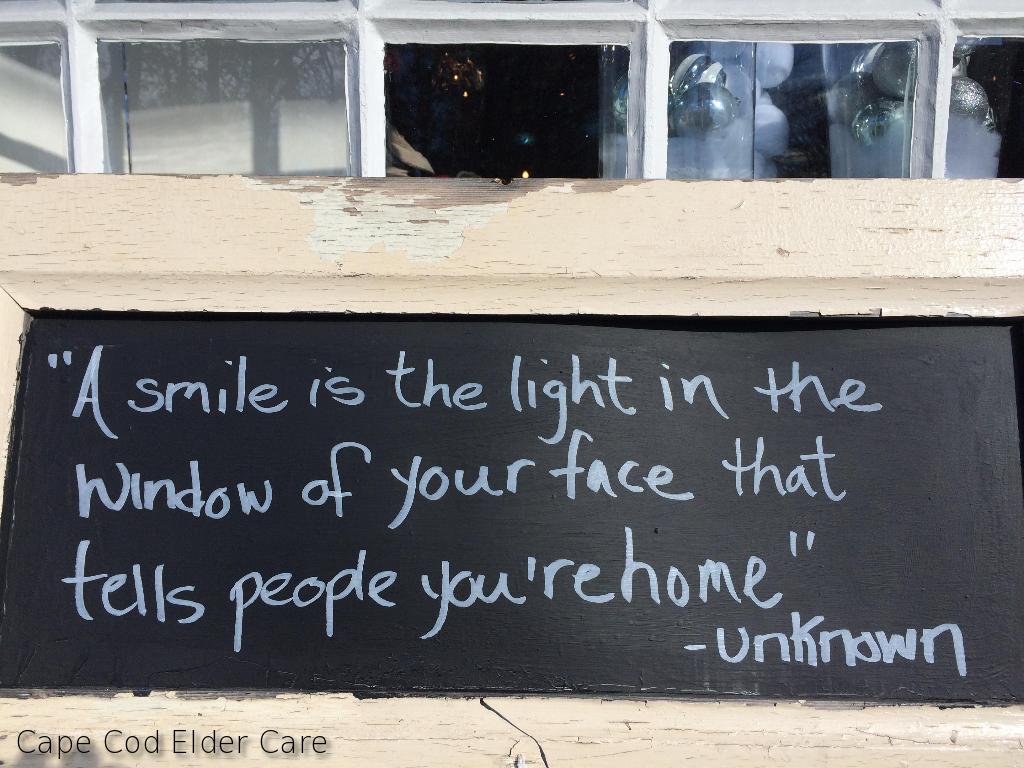 "A smile is the light in the
window of your face that
tells people you're home"
-unknown
Cape Cod Elder Care